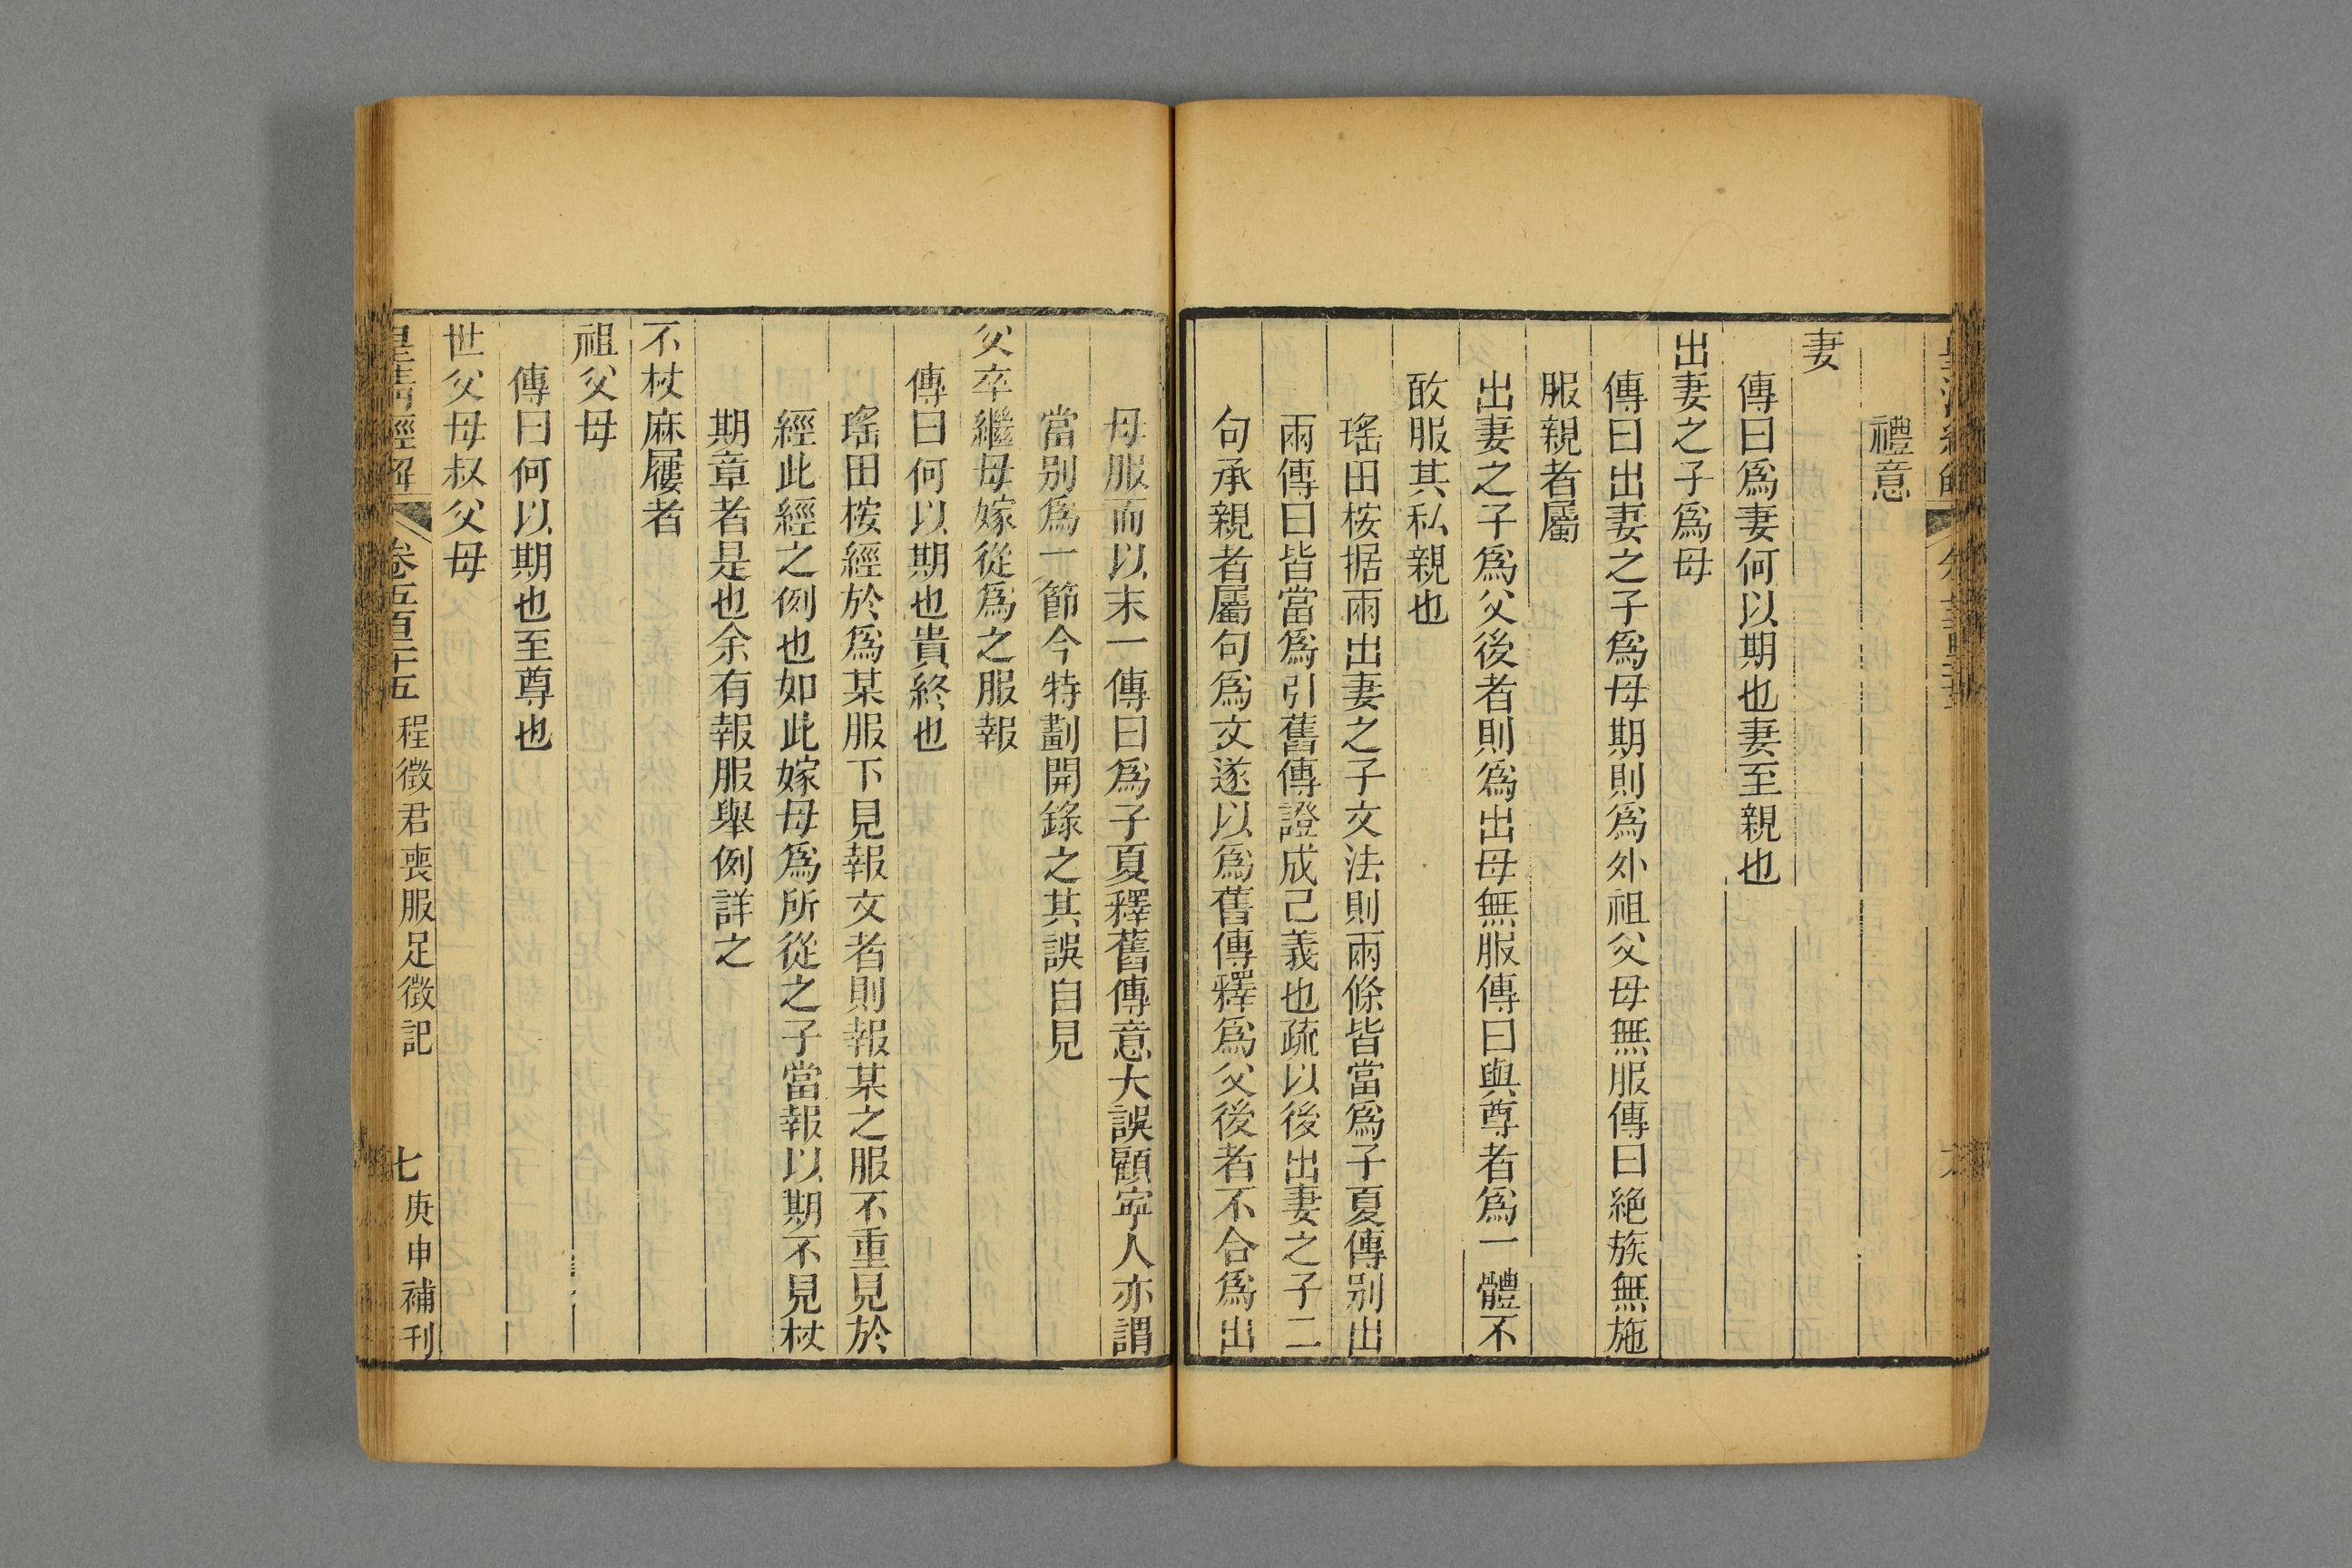 禮意
妻
傳曰爲妻何以期也妻至親也
出妻之子爲母
傳曰出妻之子爲母期則爲外祖父母無服傳曰絶族無施
服親者屬
出妻之子爲父後者則爲出母無服傳曰與尊者爲一體不
敢服其私親也
瑤田桉据兩出妻之子文法則兩條皆當爲子夏傳别出
兩傳曰皆當爲引舊傳證成己義也疏以後出妻之子二
句承親者屬句爲文遂以爲舊傳釋爲父後者不合爲出
母服而以末一傳曰爲子夏釋舊傳意大誤顧寧人亦謂
當别爲一節今特劃開錄之其誤自見
父卒繼母嫁從爲之服報
傳曰何以期也貴終也
瑤田桉經於爲某服下見報文者則報某之服不重見於
經此經之例也如此嫁母爲所從之子當報以期不見杖
期章者是也余有報服舉例詳之
不杖麻屨者
祖父母
傳曰何以期也至尊也
世父母叔父母
皇清經解 卷五百二十五 程徵君喪服足徵記 七 庚申補刊